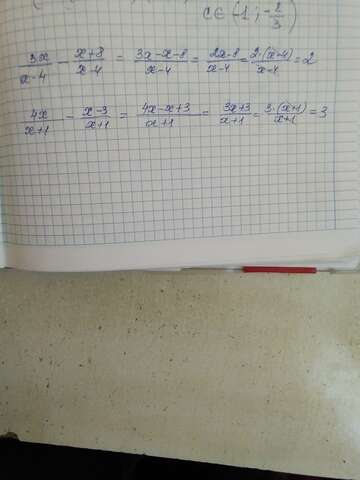 c ∈ (-1; -2/3)
3x/(x-4) - (x+8)/(x-4) = (3x-x-8)/(x-4) = (2x-8)/(x-4) = 2·(x-4)/(x-4) = 2
4x/(x+1) - (x-3)/(x+1) = (4x-x+3)/(x+1) = (3x+3)/(x+1) = 3·(x+1)/(x+1) = 3